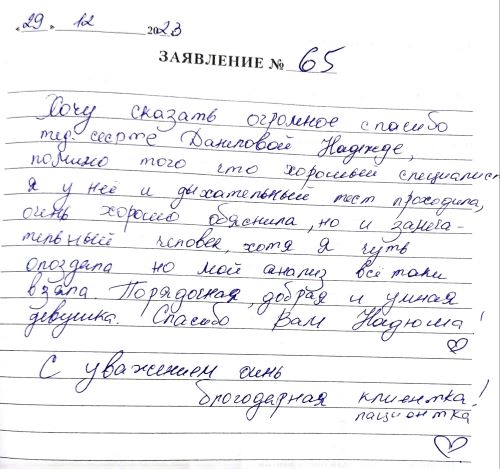 «29» 12 2023
ЗАЯВЛЕНИЕ № 65
Хочу сказать огромное спасибо
мед. сестре Даниловой Надежде,
помимо того что хороший специалист
я у неё и дыхательный тест проходила,
очень хорошо объяснила, но и замеча-
тельный человек, хотя я чуть
опоздала но мой анализ всё таки
взяла. Порядочная, добрая и умная
девушка. Спасибо Вам Надюша!
С уважением очень
благодарная клиентка!
пациентка